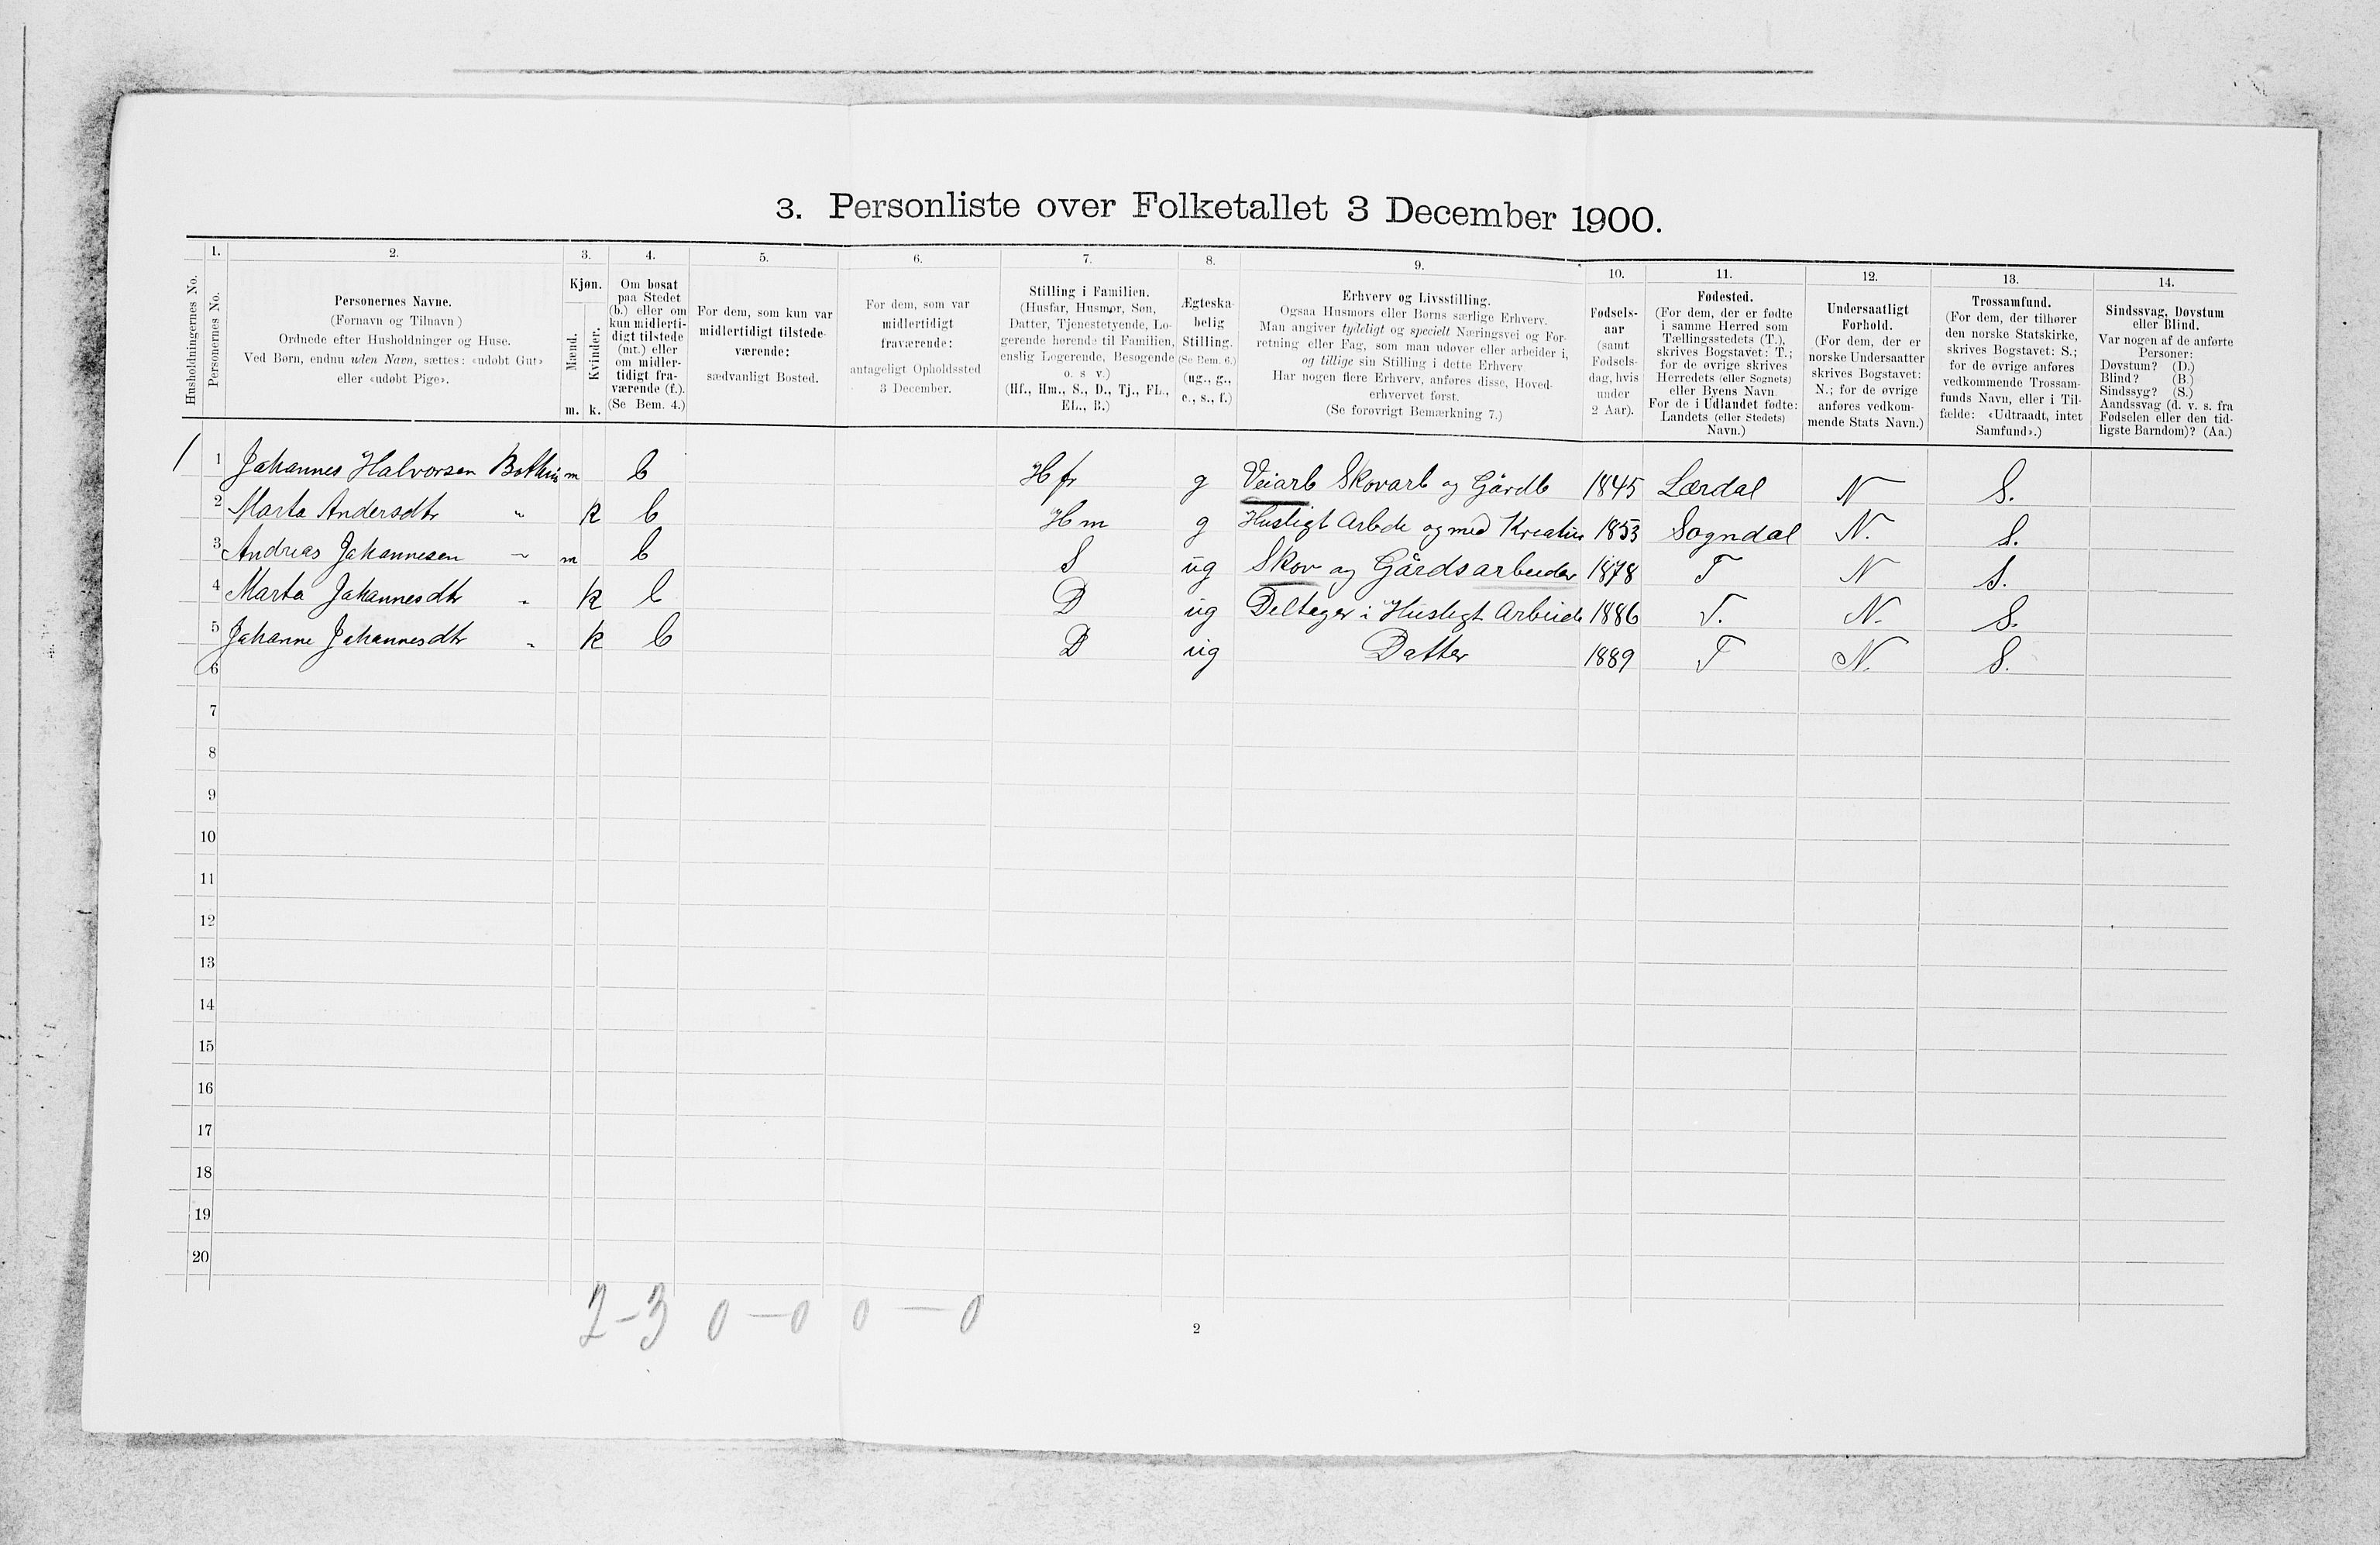 3. Personliste over Folketallet 3 December 1900.
1. 2. 3. 4. 5. 6. 7. 8. 9. 10. 11. 12. 13. 14.
Husholdningernes No.
Personernes No.
Personernes Navne.
(Fornavn og Tilnavn)
Ordnede efter Husholdninger og Huse.
Ved Børn, endnu uden Navn, sættes: «udøbt Gut»
eller «udøbt Pige».
Kjøn.
Mænd.
Kvinder.
m. k.
Om bosat
paa Stedet
(b.) eller om
kun midlerti-
digt tilstede
(mt.) eller
om midler-
tidigt fra-
værende (f.).
(Se Bem. 4.)
For dem, som kun var
midlertidigt tilstede-
værende:
sædvanligt Bosted.
For dem, som var
midlertidigt
fraværende:
antageligt Opholdssted
3 December.
Stilling i Familien.
(Husfar, Husmor, Søn,
Datter, Tjenestetyende, Lo-
gerende hørende til Familien,
enslig Logerende, Besøgende
o. s v.)
(Hf., Hm., S., D., Tj., FL.,
EL., B.)
Ægteska-
belig
Stilling.
(Se Bem. 6.)
(ug., g.,
e., s., f.)
Erhverv og Livsstilling.
Ogsaa Husmors eller Børns særlige Erhverv.
Man angiver tydeligt og specielt Næringsvei og For-
retning eller Fag, som man udøver eller arbeider i,
og tillige sin Stilling i dette Erhverv
Har nogen flere Erhverv, anføres disse, Hoved-
erhvervet først.
(Se forøvrigt Bemærkning 7.)
Fødsels-
aar
(samt
Fødsels-
dag, hvis
under
2 Aar).
Fødested.
(For dem, der er fødte
i samme Herred som
Tællingsstedets (T.),
skrives Bogstavet: T.;
for de øvrige skrives
Herredets (eller Sognets)
eller Byens Navn.
For de i Udlandet fødte:
Landets (eller Stedets)
Navn.)
Undersaatligt
Forhold.
(For dem, der er
norske Undersaatter
skrives Bogstavet:
N.; for de øvrige
anføres vedkom-
mende Stats Navn.)
Trossamfund.
(For dem, der tilhører
den norske Statskirke,
skrives Bogstavet: S.;
for de øvrige anføres
vedkommende Trossam-
funds Navn, eller i Til-
fælde: «Udtraadt, intet
Samfund».)
Sindssvag, Døvstum
eller Blind.
Var nogen af de anførte
Personer:
Døvstum? (D.)
Blind? (B.)
Sindssyg? (S.)
Aandssvag (d. v. s. fra
Fødselen eller den tid-
ligste Barndom)? (Aa.)
1 1 Johannes Halvorsen m b Hfr g Veiarb Skovarb og Gårdb 1845 Lærdal N S.
2 Marta Andersdtr " k b Hm g Husligt Arbde og med Kreatur 1853 Sogndal N. S.
3 Andreas Johannesen " m b S ug Skov og Gårdsarbeider 1878 T N S.
4 Marta Johannesdtr " k b D ug Deltager i Husligt Arbeide 1886 T. N. S.
5 Johanne Johannesdtr " k b D ug Datter 1889 T N. S.
6
7
8
9
10
11
12
13
14
15
16
17
18
19
20
2-3 0-0 0-0
2